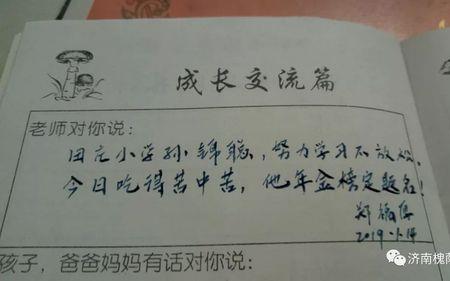 成长交流篇
老师对你说：
田庄小学孙锦聪，努力学习不放松，
今日吃得苦中苦，他年金榜定题名！
郑
2019.1.14
孩子，爸爸妈妈有话对你说：
济南槐荫